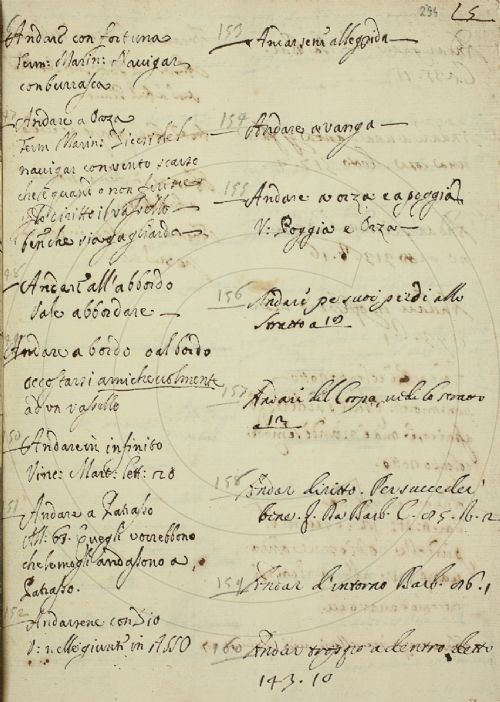 295 25
Andare con fortuna
Term: Marin: Navigar
con burrasca
Andare a Orza
Term Marin: Dicesi del
navigar con vento scarso
che è quando non ferisce
diritto il vascello
benche sia gagliardo
148
Andare all'abbordo
Vale abbordare
149
Andare a bordo o al bordo
accostarsi amichevolmente
ad un vassello
150
Andare in infinito
Vinc: Mart: lett: 28
151
Andare a Patrasso
All: 63. quegli vorrebbono
che le mogli andassono a
Patrasso.
152
Andarsene con Dio
V: nelle giunte in ASSO
153
Andarsene alla
154
Andare a vanga
155
Andare a orza e a poggia
V: Poggia e Orza
156
Andare pe suoi piedi allo
stratto a 18
157
Andare del Corpo, vedi lo stratto
a 12
158
Andar diritto. Per succeder
bene. F. Ra Barb. C. 85. 16. 2
159
Andar d'intorno Barb. 86. 1
160
Andar troppo a dentro detto
143. 10